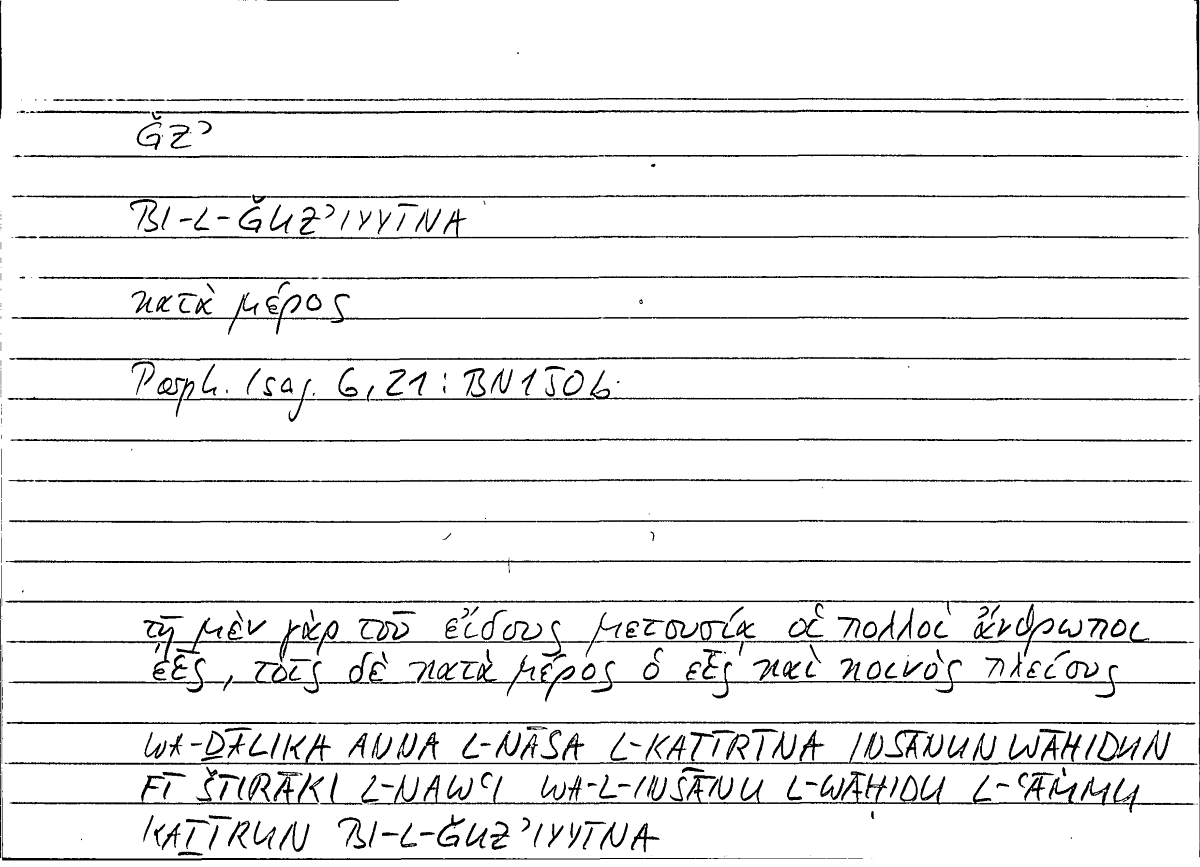 ǦZʾ
BI-L-ǦUZʾIYYĪNA
κατὰ μέρος
Porph. Isag. 6,21: BN150b
τῇ μὲν γὰρ τοῦ εἴδους μετουσίᾳ οἱ πολλοὶ ἄνθρωποι
εἷς, τοῖς δὲ κατὰ μέρος ὁ εἷς καὶ κοινὸς πλείους
WA-ḎĀLIKA ANNA L-NĀSA L-KAṮĪRĪNA INSĀNUN WĀHIDUN
FĪ ŠTIRĀKI L-NAWʿI WA-L-INSĀNU L-WĀHIDU L-ʿĀMMU
KAṮĪRUN BI-L-ǦUZʾIYYĪNA